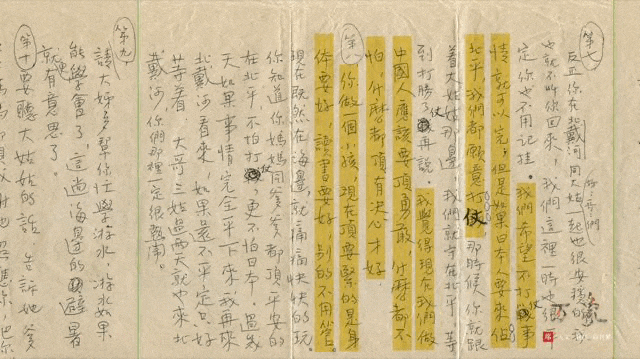 第七
反正你在北戴河同大姑一起也很安穩的,我
也就不叫你回來。我們這裡一時也很平
定,你也不用記挂。我們希望不打仗事
情就可以完;但是如果日本人要來佔
北平,我們都願意打仗,那時候你就跟
着大姑姑那邊,我們就守在北平,等
到打勝了仗再說。我覺得現在我們做
中國人應該要頂勇敢,什麼都不
怕,什麼都頂有決心才好。
第八 你做一個小孩,現在頂要緊的是身
体要好,讀書要好,別的不用管。
現在既然在海邊,就痛痛快快的玩。
你知道你媽媽同爹爹都頂平安的
在北平,不怕打仗,更不怕日本。過幾
天如果事情完全平下來,我再來
北戴河看來,如果還不平定,只好
等着。大哥三姑過兩天就也來北
戴河,你們那裡一定很熱鬧。
第九
請大姊多幫你忙學游水。游水如果
能學會了,這過海邊的避暑
就更有意思了。
第十 要聽大姑姑的話。告訴她爹